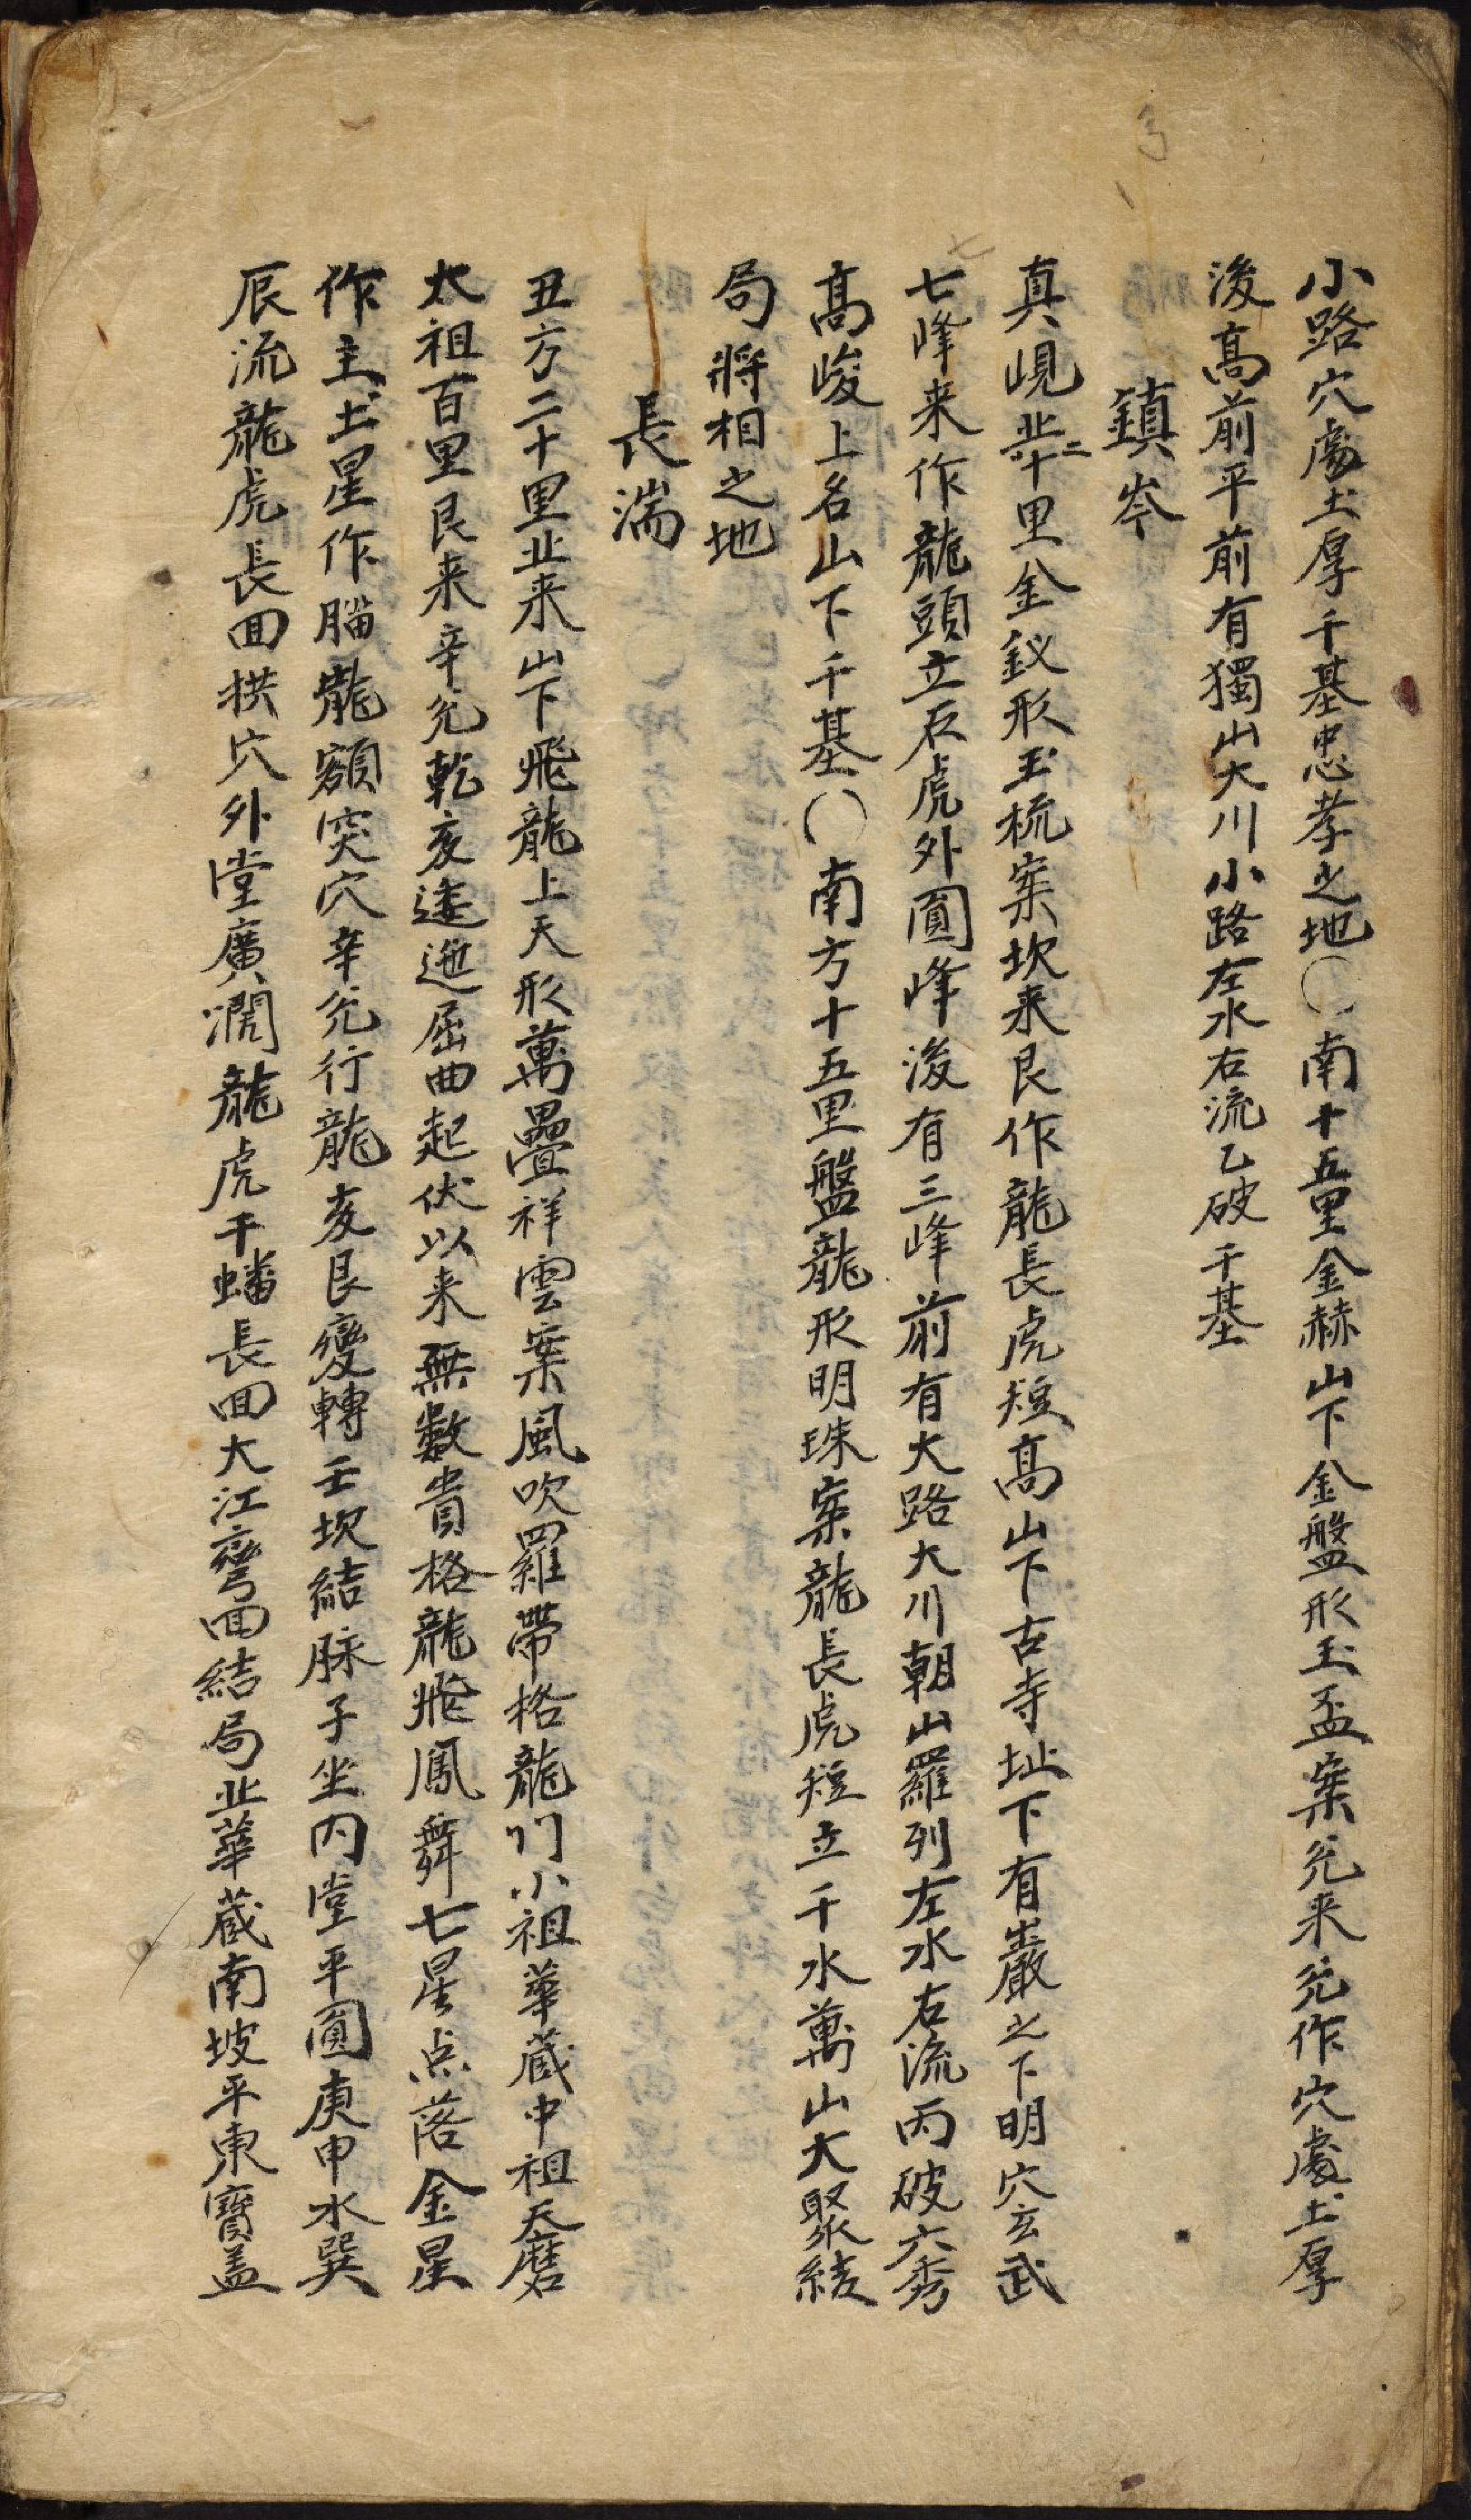 小路穴處土厚千基忠孝之地〇南十五里金赫山下金盤形玉盃案兊来兊作穴處土厚
後高前平前有獨山大川小路左水右流乙破千基
鎮岑
真峴北二十里金釵形玉梳案坎来艮作龍長虎短高山下古寺址下有巖之下明穴玄武
七峰来作龍頭立石虎外圓峰後有三峰前有大路大川朝山羅列左水右流丙破六秀
高峻上名山下千基〇南方十五里盤龍形明珠案龍長虎短立千水萬山大聚結
局將相之地
長湍
丑方二十里北来山下飛龍上天形萬疊祥雲案風吹羅帶格龍门小祖華蔵中祖天磨
太祖百里艮来辛兊乾亥逶迤屈曲起伏以来無數貴格龍飛鳳舞七星点落金星
作主土星作腦龍額突穴辛兊行龍亥艮變轉壬坎結脉子坐内堂平圓庚申水巽
辰流龍虎長回拱穴外堂廣濶龍虎干蟠長回大江彎回結局北華蔵南坡平東寶盖